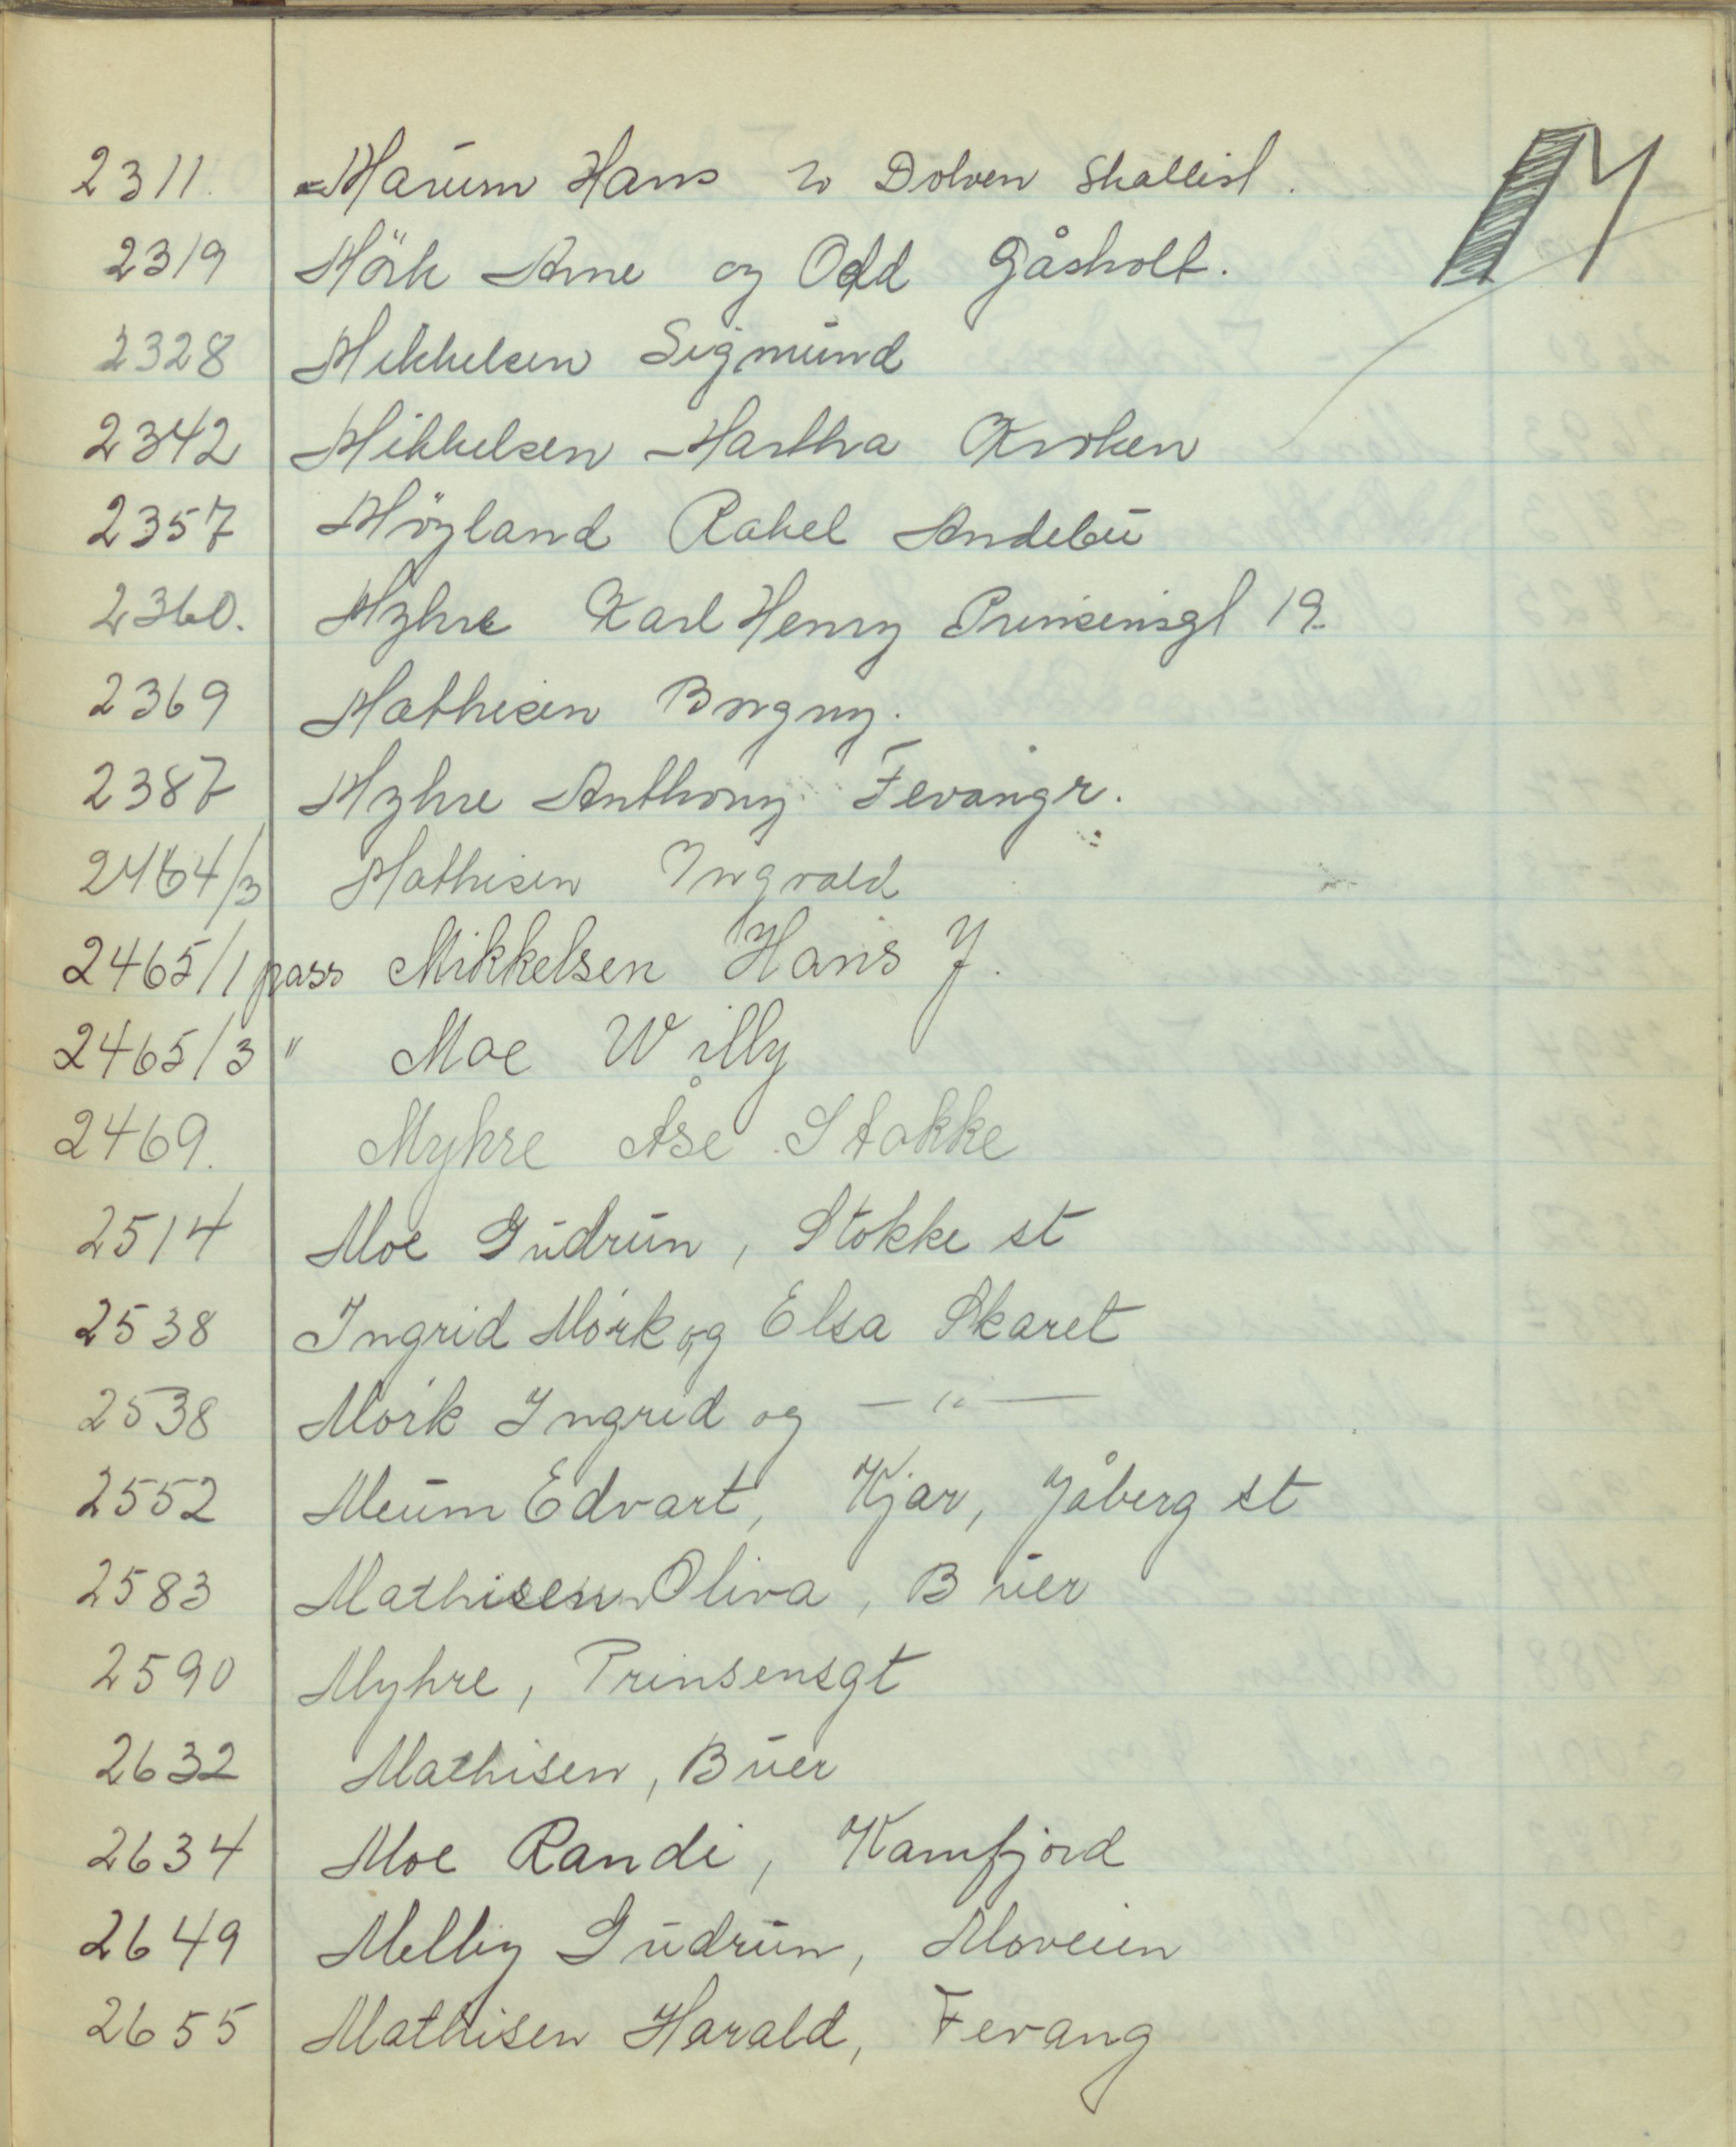 M
2311. Marum Hans Dolven
2319 Mörk Arne og Odd Gåsholt.
2328 Mikkelsen Sigmund
2342 Mikkelsen Martha Kroken
2357 Möyland Rakel Andebu
2360. Myhre Karl Henry Prinsensgt 19
2369 Mathisen Borgny.
2387 Myhre Anthony Fevangr.
2464/3 Mathisen Ingvald
2465/1 pass Mikkelsen Hans J.
2465/3 " Moe Willy
2469. Myhre Åse Stokke
2514 Moe Gudrun, Stokke st
2538 Ingrid Mörk og Elsa Skaret
2538 Mörk Ingrid og — " —
2552 Meum Edvart, Kjær, Jåberg st
2583 Mathisen Oliva, Buer
2590 Myhre, Prinsensgt
2632 Mathisen, Buer
2634 Moe Randi, Kamfjord
2649 Melby Gudrun, Moveien
2655 Mathisen Harald, Fevang